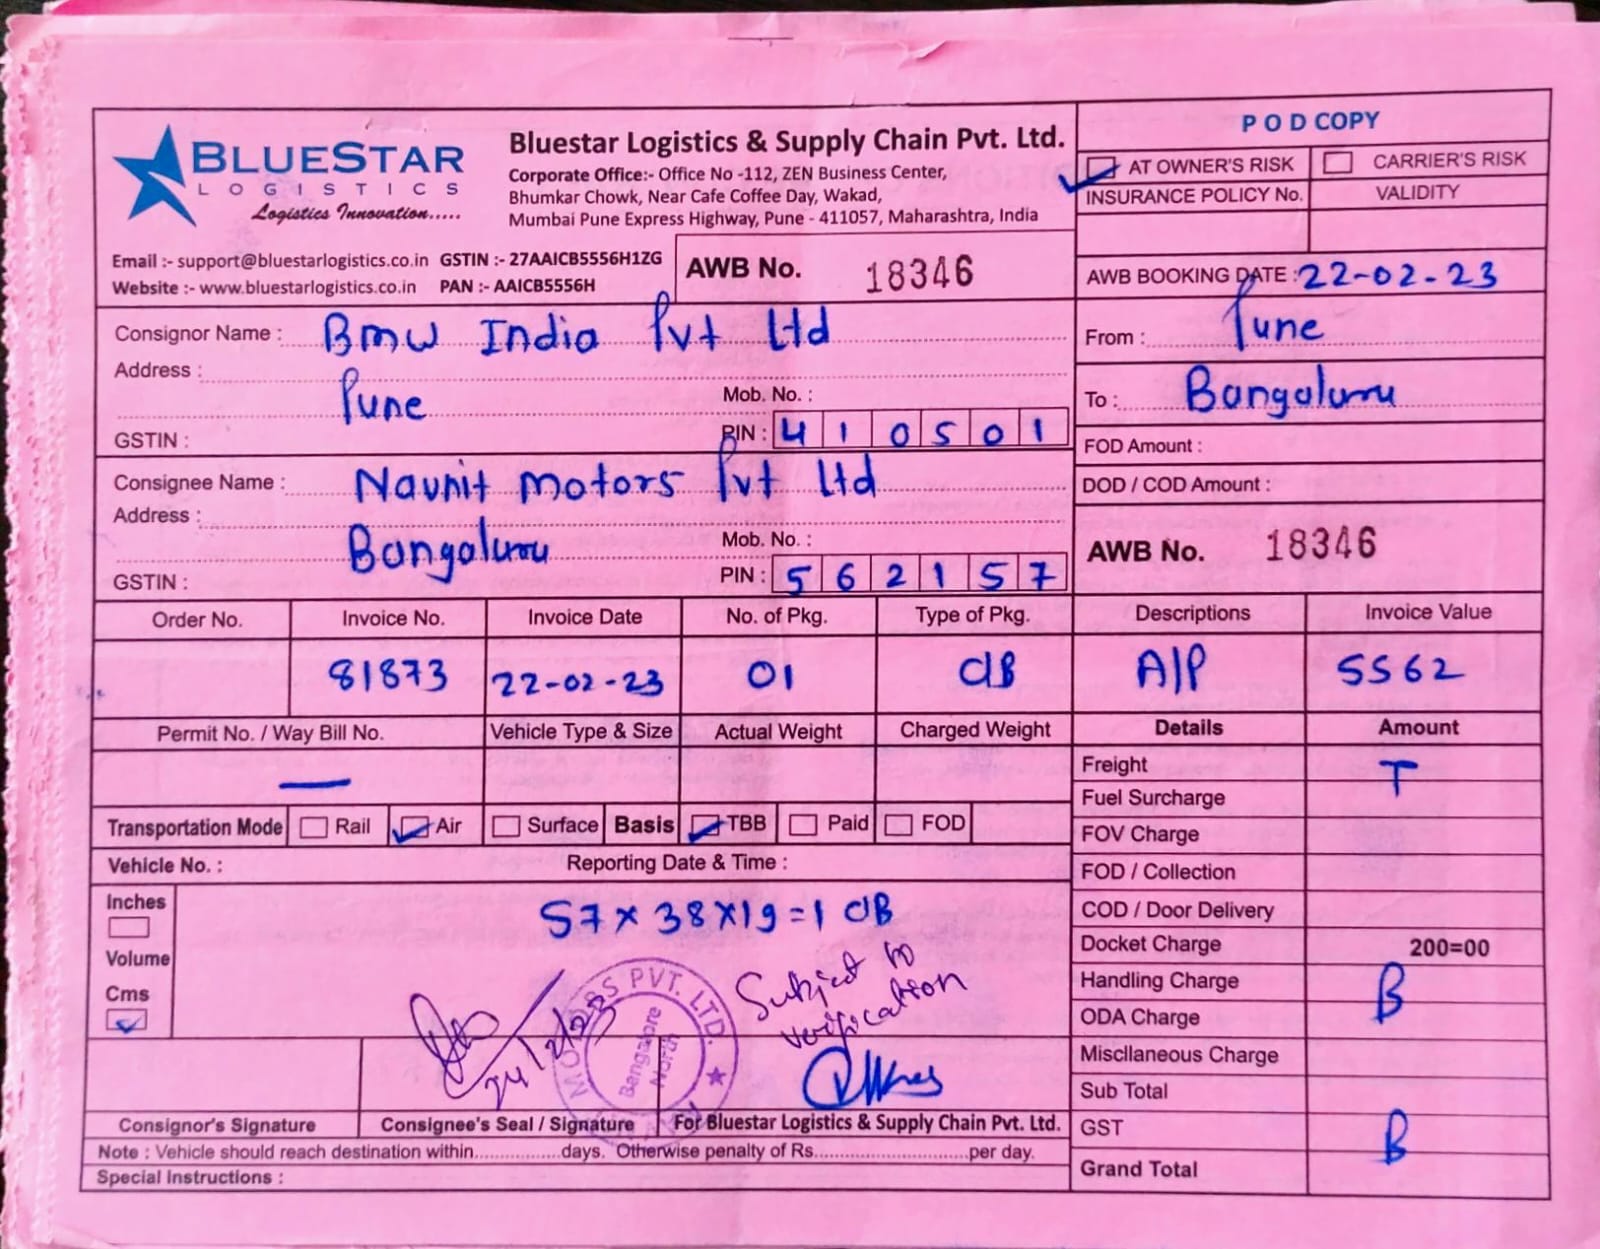 BLUESTAR
LOGISTICS
Logistics Innovation.....
Bluestar Logistics & Supply Chain Pvt. Ltd.
Corporate Office:- Office No -112, ZEN Business Center,
Bhumkar Chowk, Near Cafe Coffee Day, Wakad,
Mumbai Pune Express Highway, Pune - 411057, Maharashtra, India
Email :- support@bluestarlogistics.co.in GSTIN :- 27AAICB5556H1ZG
Website :- www.bluestarlogistics.co.in PAN :- AAICB5556H
AWB No. 18346
POD COPY
AT OWNER'S RISK CARRIER'S RISK
INSURANCE POLICY No. VALIDITY
AWB BOOKING DATE : 22-02-23
From : Pune
To : Bangaluru
FOD Amount :
DOD / COD Amount :
AWB No. 18346
Consignor Name : BMW India Pvt Ltd
Address :
Pune
Mob. No. :
GSTIN :
PIN : 410501
Consignee Name : Navnit Motors Pvt Ltd
Address :
Bangaluru
Mob. No. :
GSTIN :
PIN : 562157
Order No. Invoice No. Invoice Date No. of Pkg. Type of Pkg. Descriptions Invoice Value
81873 22-02-23 01 CB A/P 5562
Permit No. / Way Bill No. Vehicle Type & Size Actual Weight Charged Weight
—
Transportation Mode Rail Air Surface Basis TBB Paid FOD
Vehicle No. : Reporting Date & Time :
Inches
Volume
Cms
57 x 38 x 19 = 1 CB
24/2/23
MOTORS PVT. LTD.
Bangalore
North
Subject to
verification
Consignor's Signature Consignee's Seal / Signature For Bluestar Logistics & Supply Chain Pvt. Ltd.
Note : Vehicle should reach destination within................days. Otherwise penalty of Rs............................per day.
Special Instructions :
Details Amount
Freight T
Fuel Surcharge
FOV Charge
FOD / Collection
COD / Door Delivery
Docket Charge 200=00
Handling Charge B
ODA Charge
Miscllaneous Charge
Sub Total
GST B
Grand Total